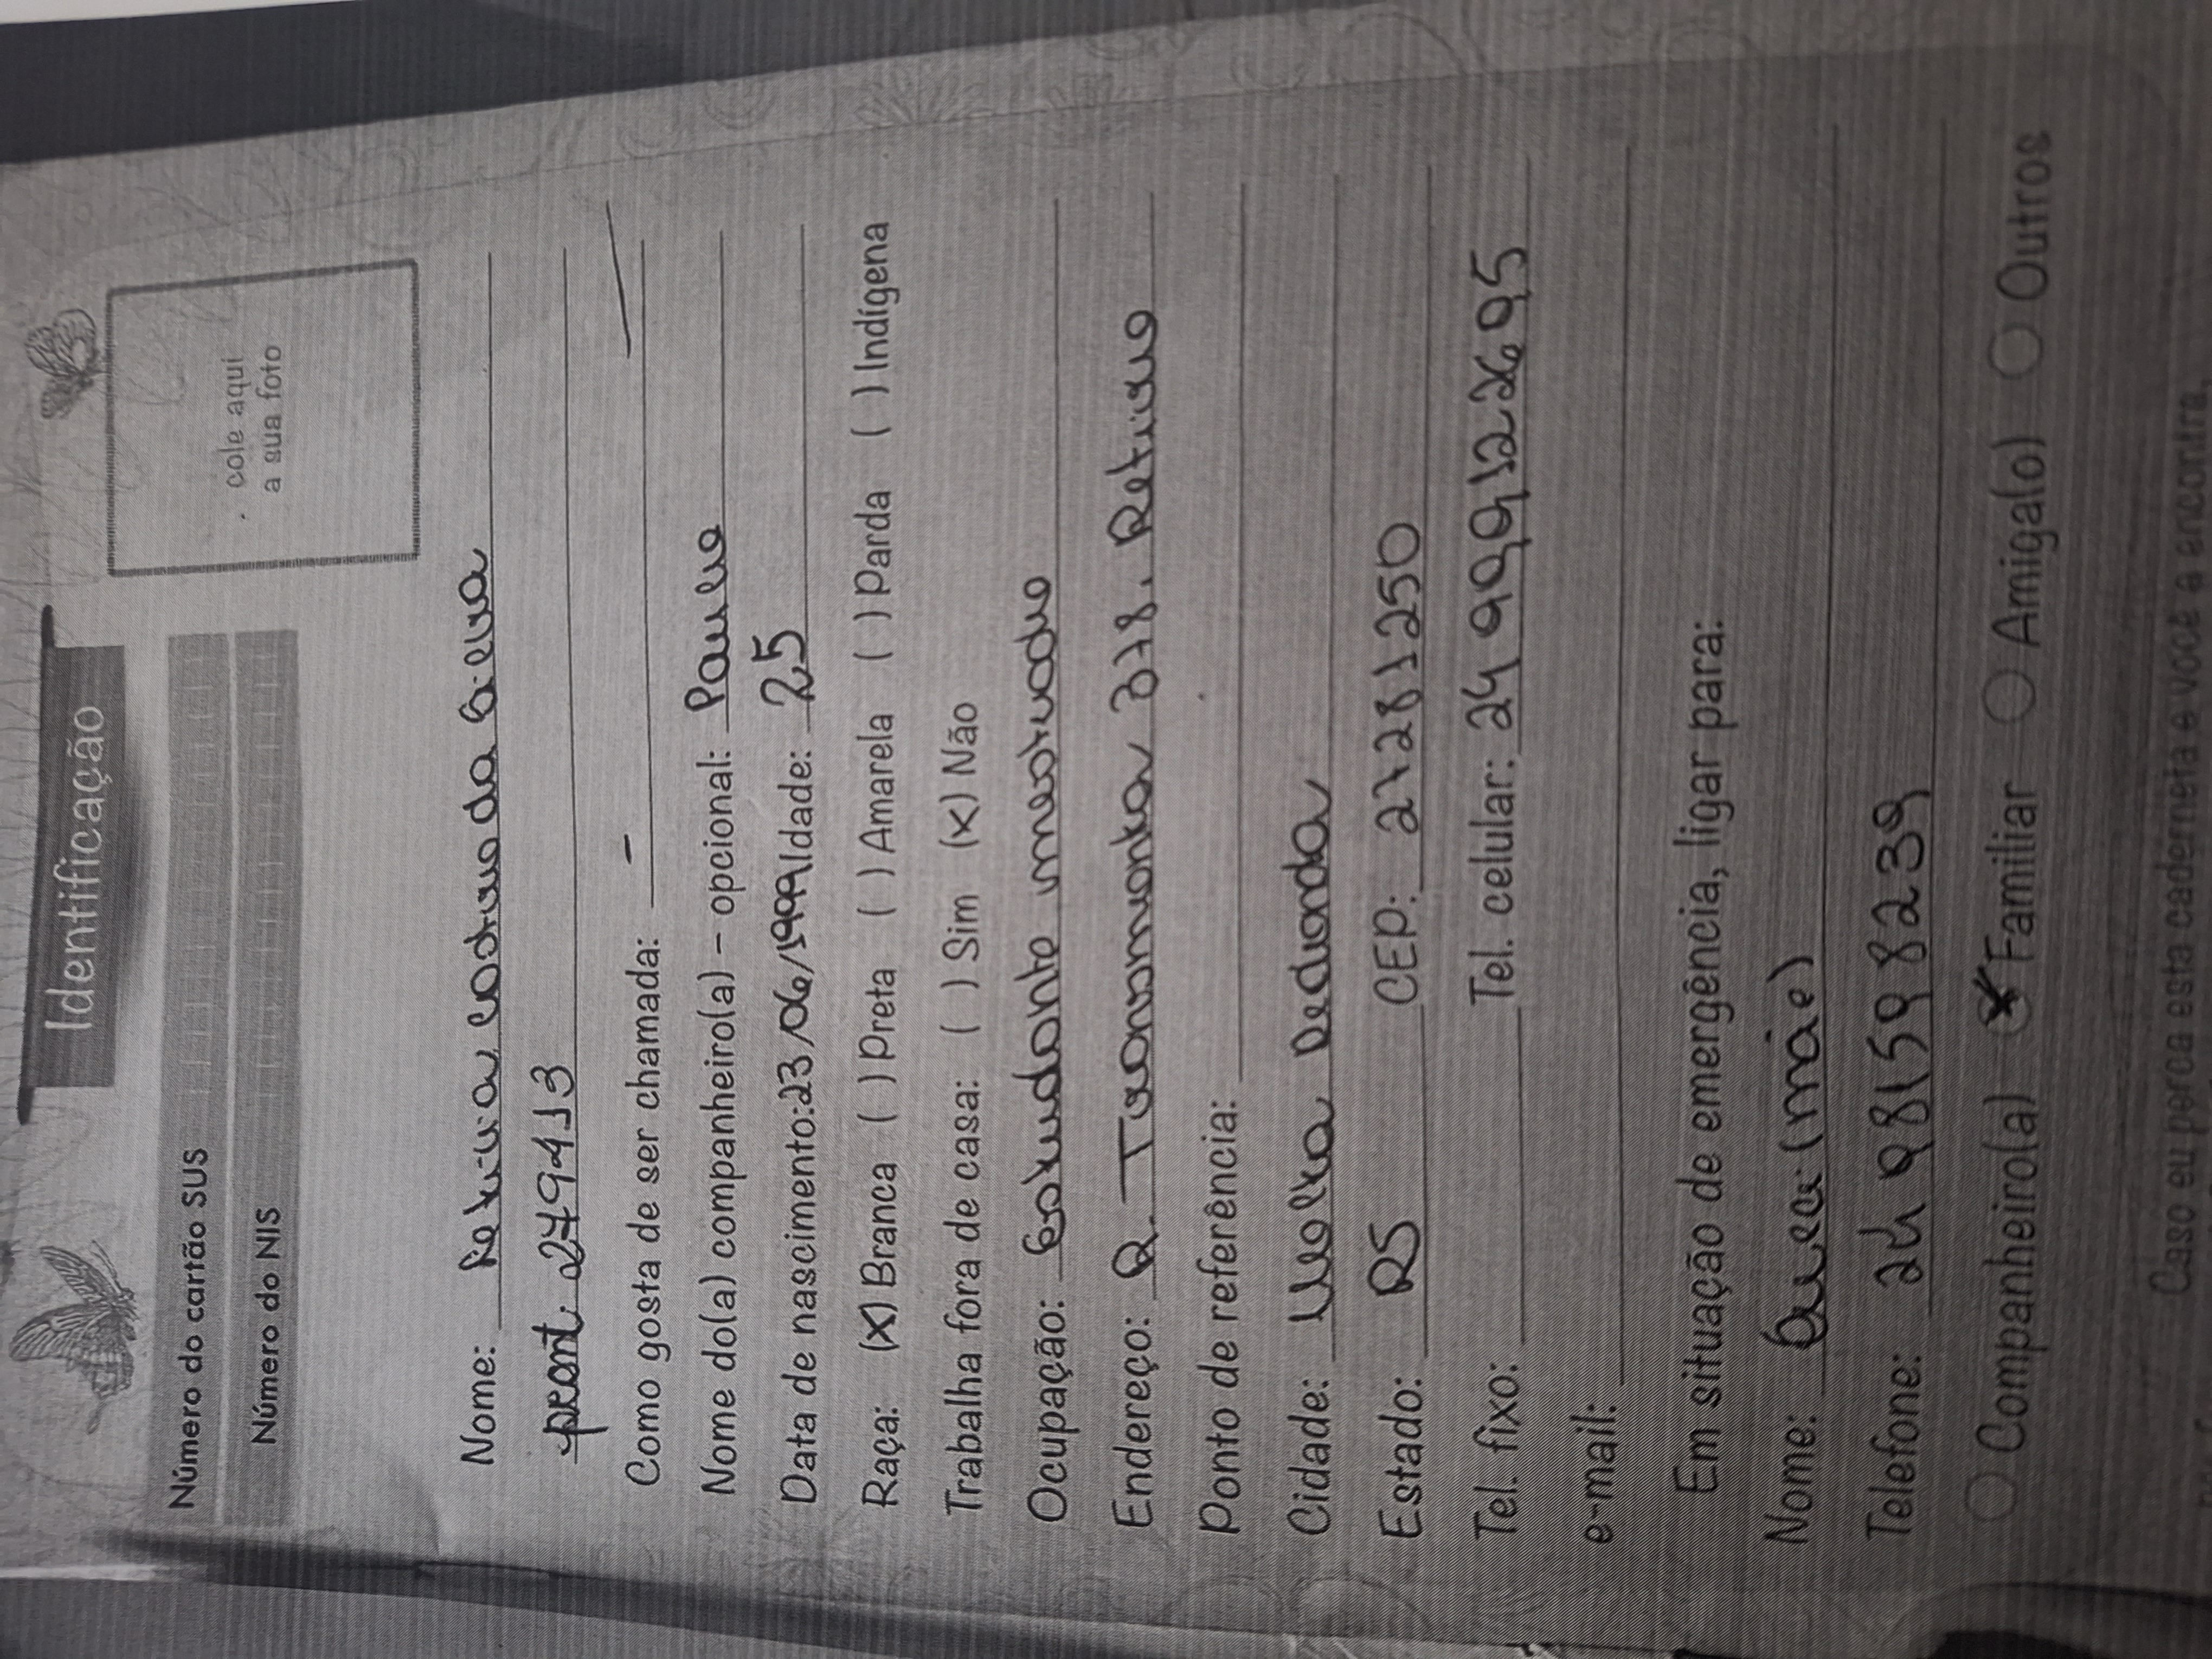 Identificação
cole aqui
a sua foto
Número do cartão SUS
Número do NIS
Nome: Costa da Silva
pront. 279413
Como gosta de ser chamada: -
Nome do(a) companheiro(a) - opcional: Paulo
Data de nascimento: 23/06/1999 Idade: 25
Raça: (x) Branca ( ) Preta ( ) Amarela ( ) Parda ( ) Indígena
Trabalha fora de casa: ( ) Sim (x) Não
Ocupação: Estudante mestrado
Endereço: R. 378. Retiro
Ponto de referência:
Cidade: Volta Redonda
Estado: RJ CEP: 27281250
Tel. fixo: Tel. celular: 24 999122695
e-mail:
Em situação de emergência, ligar para:
Nome: (mãe)
Telefone: 24 981598239
Companheiro(a) Familiar Amiga(o) Outros
Caso eu perca esta caderneta e você a encontra,